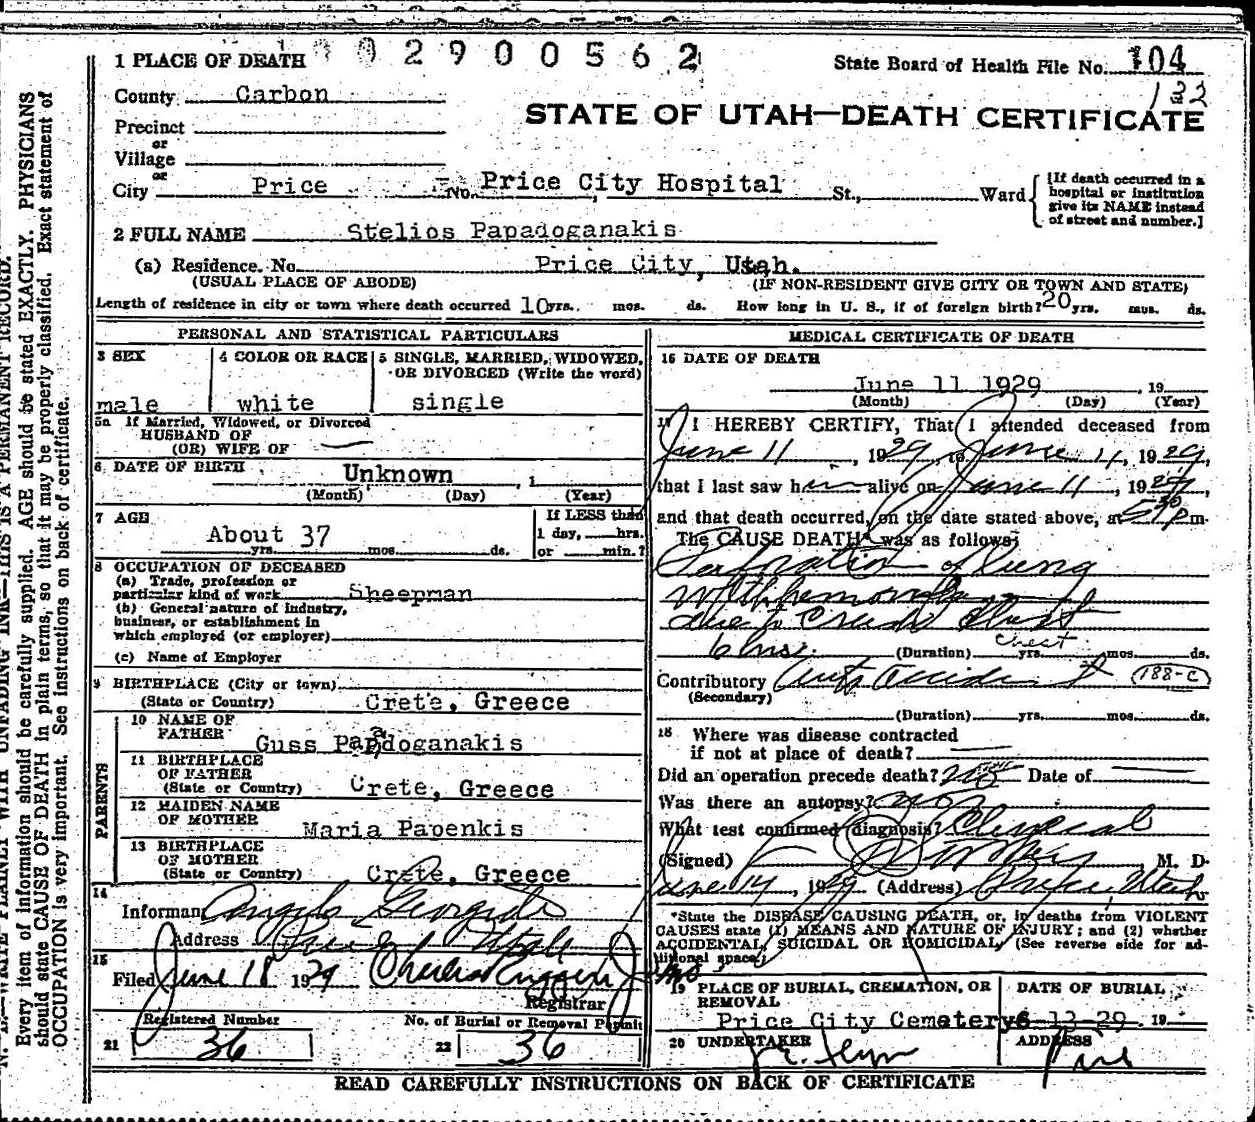 2900562
1 PLACE OF DEATH
State Board of Health File No. 104
122
County Carbon
STATE OF UTAH—DEATH CERTIFICATE
Precinct
or
Village
or
City Price No. Price City Hospital St., Ward
[If death occurred in a
hospital or institution
give its NAME instead
of street and number.]
2 FULL NAME Stelios Papadoganakis
(a) Residence. No. Price City, Utah.
(USUAL PLACE OF ABODE) (IF NON-RESIDENT GIVE CITY OR TOWN AND STATE)
Length of residence in city or town where death occurred 10 yrs. mos. ds. How long in U. S., if of foreign birth? 20 yrs. mos. ds.
PERSONAL AND STATISTICAL PARTICULARS
3 SEX
male
4 COLOR OR RACE
white
5 SINGLE, MARRIED, WIDOWED,
OR DIVORCED (Write the word)
single
5a If Married, Widowed, or Divorced
HUSBAND OF
(OR) WIFE OF —
6 DATE OF BIRTH Unknown , 1
(Month) (Day) (Year)
7 AGE
About 37
yrs. mos. ds.
If LESS than
1 day, hrs.
or min.?
8 OCCUPATION OF DECEASED
(a) Trade, profession or
particular kind of work Sheepman
(b) General nature of industry,
business, or establishment in
which employed (or employer)
(c) Name of Employer
9 BIRTHPLACE (City or town)
(State or Country) Crete, Greece
PARENTS
10 NAME OF
FATHER Guss Papadoganakis
11 BIRTHPLACE
OF FATHER
(State or Country) Crete, Greece
12 MAIDEN NAME
OF MOTHER Maria Papenkis
13 BIRTHPLACE
OF MOTHER
(State or Country) Crete, Greece
14
Informant Angelo
Address Price Utah
15
Filed June 18 1929
Registrar
Registered Number
21 36
No. of Burial or Removal Permit
22 36
MEDICAL CERTIFICATE OF DEATH
16 DATE OF DEATH
June 11 1929 , 19
(Month) (Day) (Year)
17 I HEREBY CERTIFY, That I attended deceased from
June 11 , 1929, to June 11, 1929,
that I last saw him alive on June 11 , 1929,
and that death occurred, on the date stated above, at 5 30 p m.
The CAUSE DEATH* was as follows:
Perforation of lung
with hemorrhage
due to Crushed Chest
Chest
6 hrs. (Duration) yrs. mos. ds.
Contributory Auto Accident 188-C
(Secondary)
(Duration) yrs. mos. ds.
18 Where was disease contracted
if not at place of death? —
Did an operation precede death? no Date of —
Was there an autopsy? no
What test confirmed diagnosis? Clinical
(Signed) M. D.
June 14 , 1929 (Address) Price, Utah
*State the DISEASE CAUSING DEATH, or, in deaths from VIOLENT
CAUSES state (1) MEANS AND NATURE OF INJURY; and (2) whether
ACCIDENTAL, SUICIDAL OR HOMICIDAL. (See reverse side for ad-
ditional space.)
19 PLACE OF BURIAL, CREMATION, OR
REMOVAL
Price City Cemetery
DATE OF BURIAL
6-13-29 19
20 UNDERTAKER
J. E. Flynn
ADDRESS
Price
READ CAREFULLY INSTRUCTIONS ON BACK OF CERTIFICATE
N. B.—WRITE PLAINLY WITH UNFADING INK—THIS IS A PERMANENT RECORD.
Every item of information should be carefully supplied. AGE should be stated EXACTLY. PHYSICIANS
should state CAUSE OF DEATH in plain terms, so that it may be properly classified. Exact statement of
OCCUPATION is very important. See instructions on back of certificate.